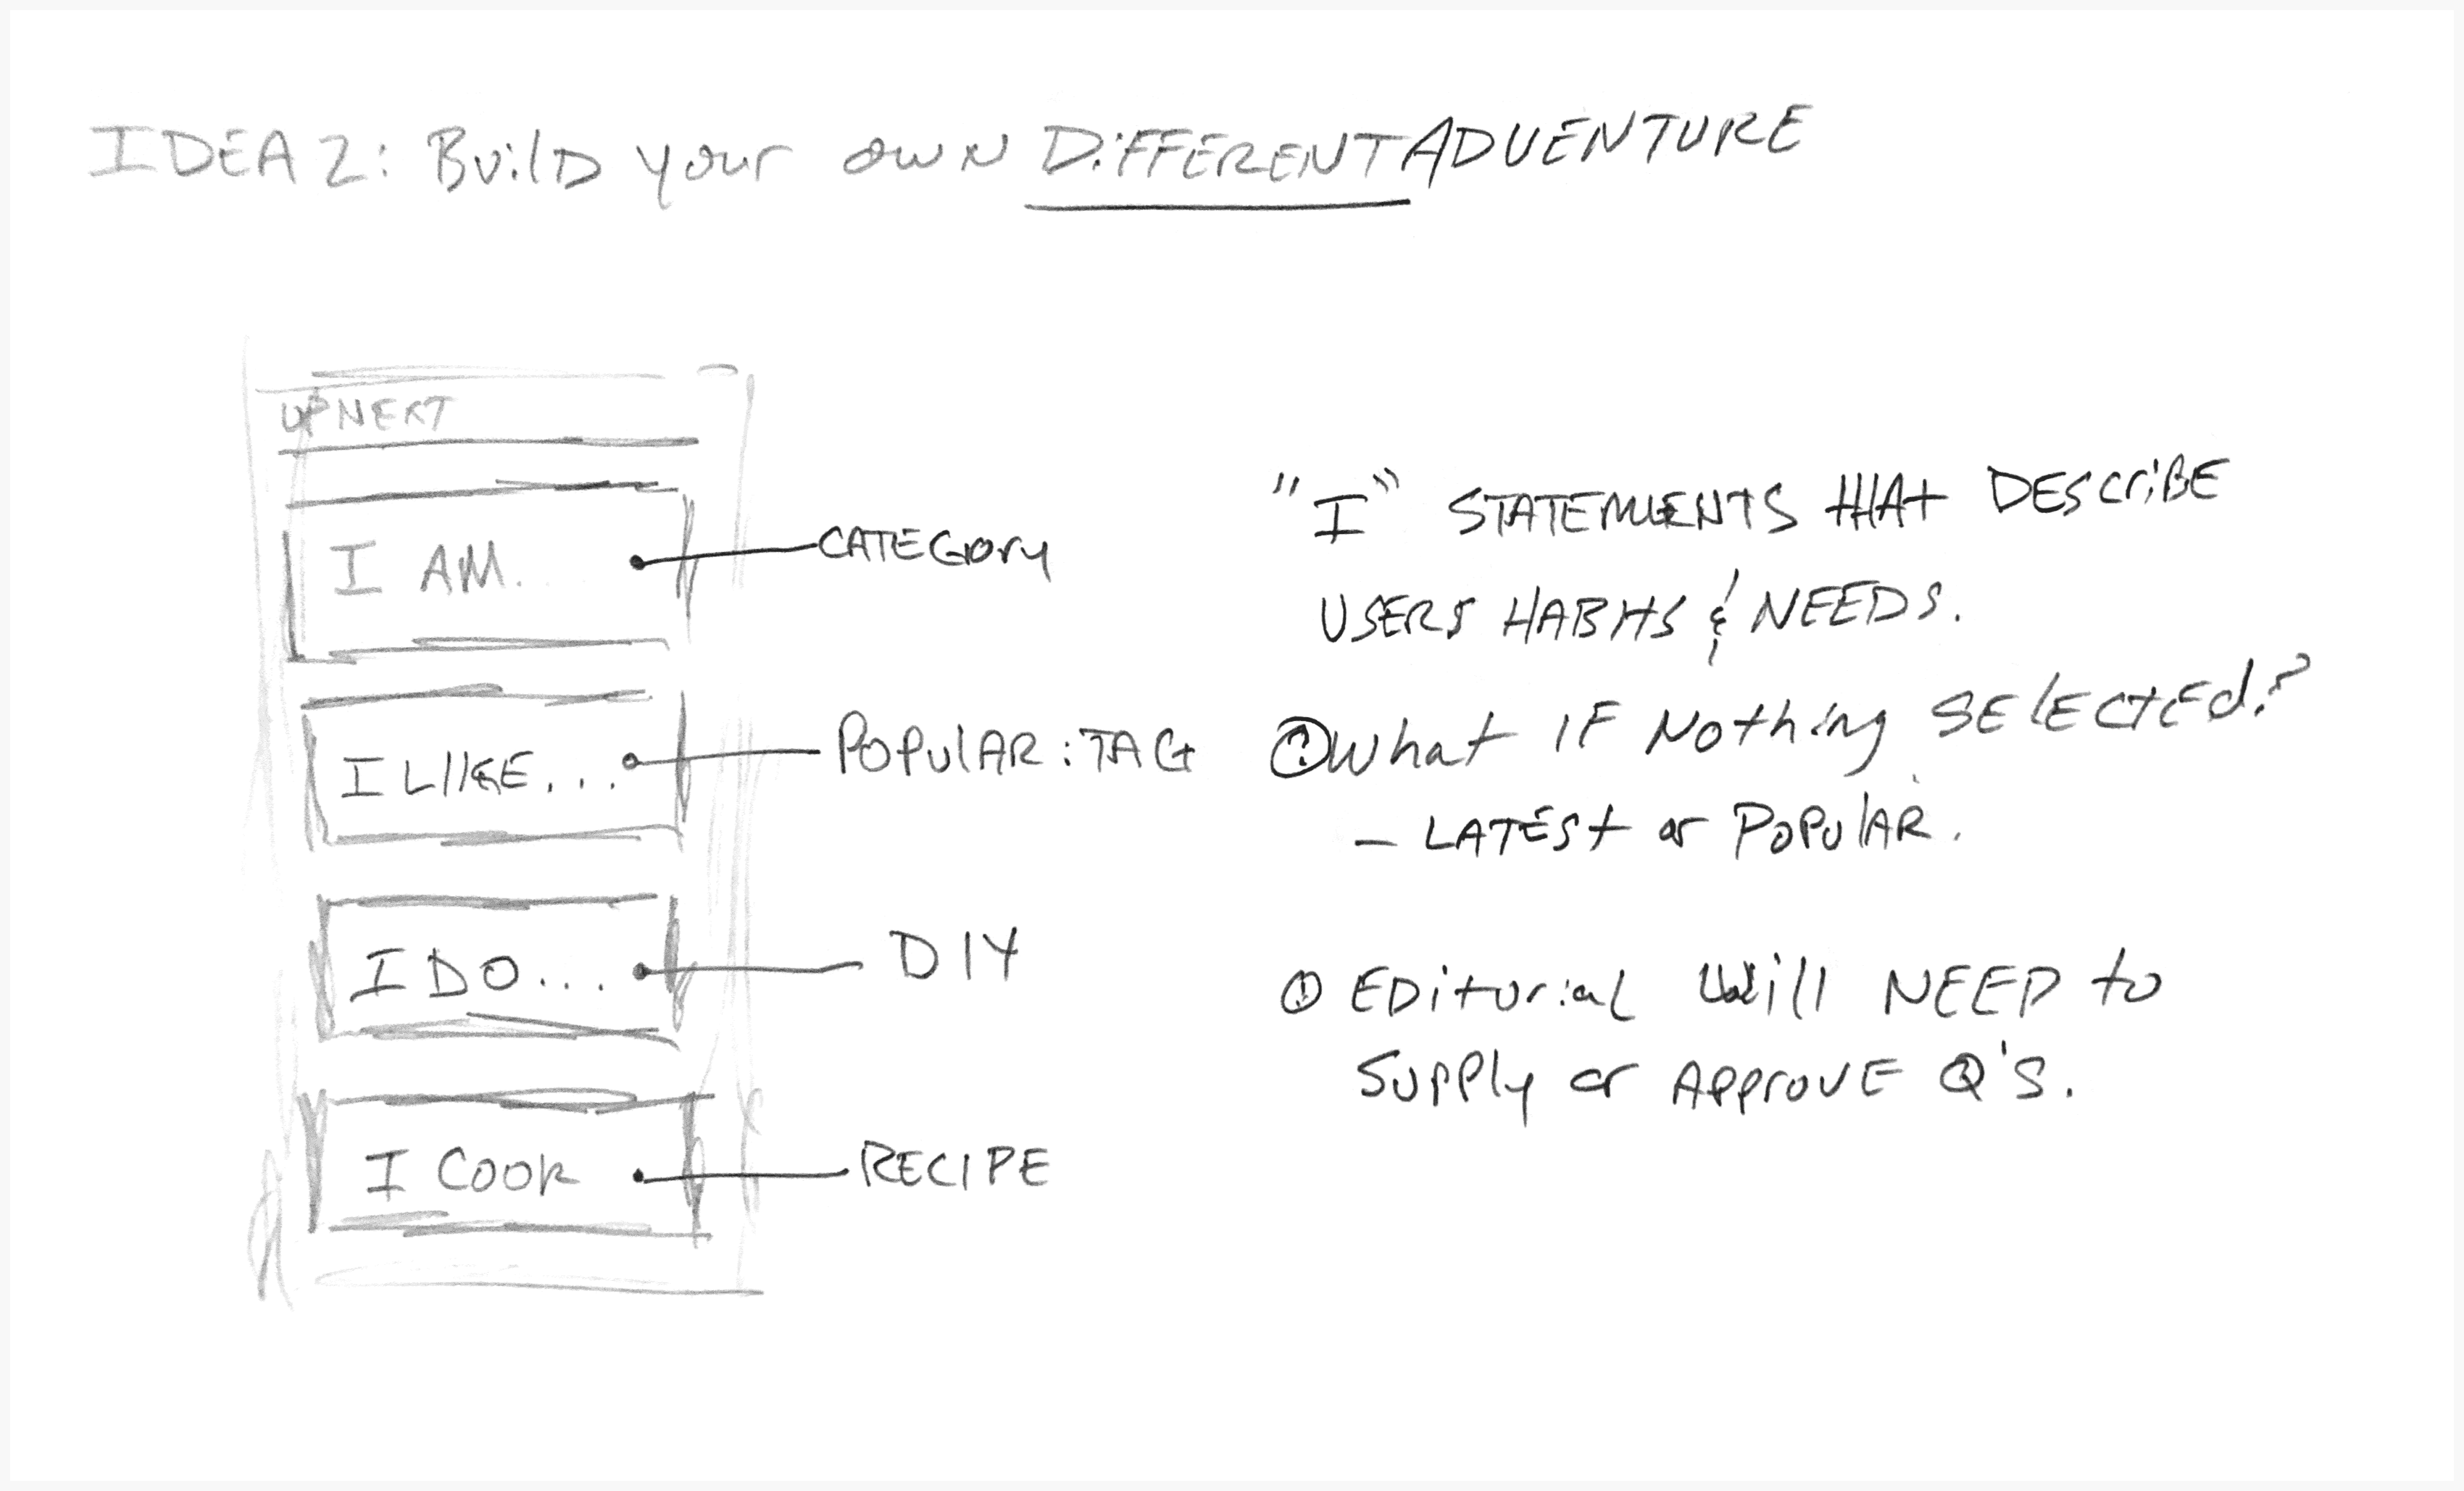 IDEA 2: Build your own DiFFERENT ADVENTURE
UP NEXT
I AM.
CATEGORY
I LIKE...
POPULAR : TAG
I DO...
DIY
I COOK
RECIPE
"I" STATEMENTS THAT DESCRIBE
USERS HABITS & NEEDS.
! What IF Nothing SELECTED?
- LATEST or POPULAR.
! EDitorial Will NEED to
Supply or APPROVE Q'S.